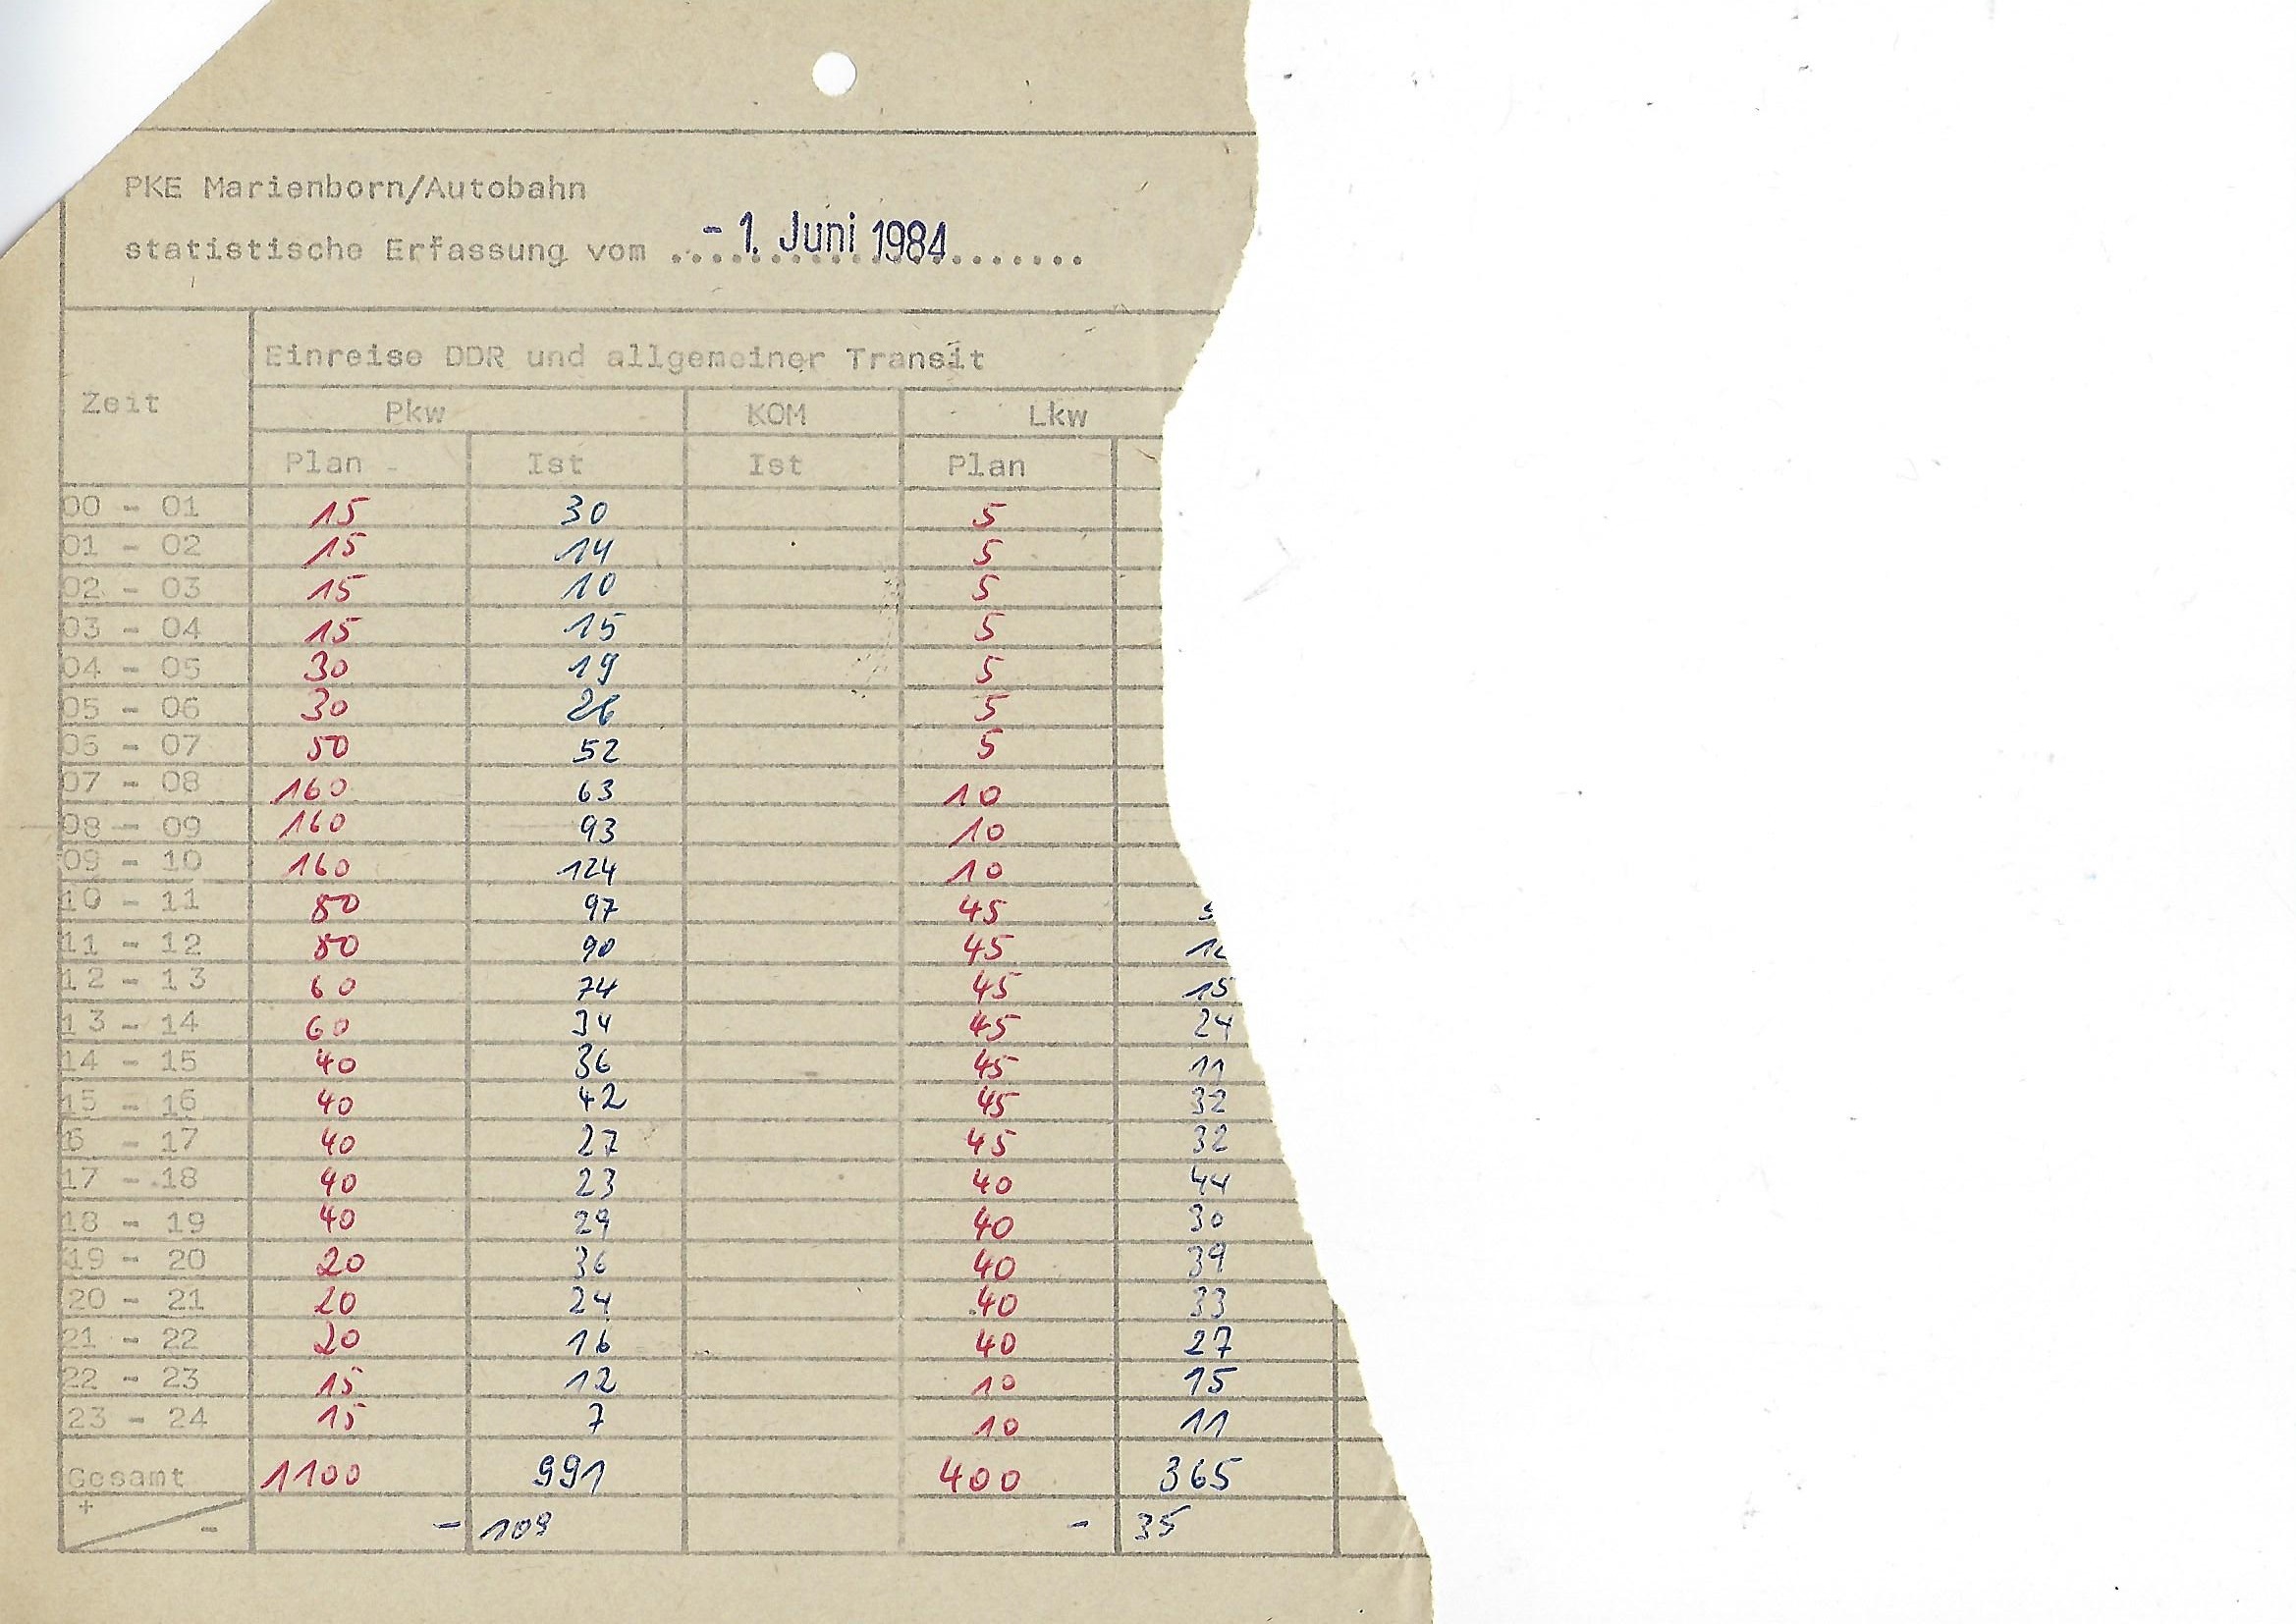 PKE Marienborn/Autobahn
statistische Erfassung vom - 1. Juni 1984
Einreise DDR und allgemeiner Transit
Zeit
Pkw KOM Lkw
Plan - Ist Ist Plan
00 - 01 15 30 5
01 - 02 15 14 5
02 - 03 15 10 5
03 - 04 15 15 5
04 - 05 30 19 5
05 - 06 30 26 5
06 - 07 50 52 5
07 - 08 160 63 10
08 - 09 160 93 10
09 - 10 160 124 10
10 - 11 80 97 45
11 - 12 80 90 45
12 - 13 60 74 45 15
13 - 14 60 34 45 24
14 - 15 40 36 45 11
15 - 16 40 42 45 32
6 - 17 40 27 45 32
17 - 18 40 23 40 44
18 - 19 40 29 40 30
19 - 20 20 36 40 39
20 - 21 20 24 40 33
21 - 22 20 16 40 27
22 - 23 15 12 10 15
23 - 24 15 7 10 11
Gesamt 1100 991 400 365
+ - - 109 - 35